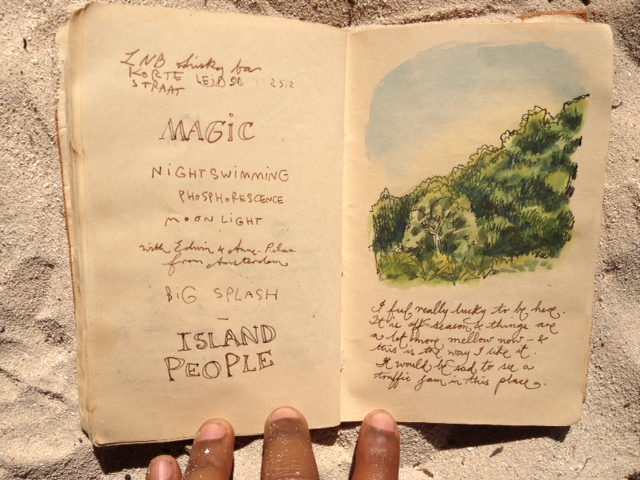 LNB whisky bar
KORTE LEIDSE
STRAAT
MAGIC
NIGHTSWIMMING
PHOSPHORESCENCE
MOONLIGHT
with Edwin & Anne-
from Amsterdam
BIG SPLASH
–
ISLAND
PEOPLE
I feel really lucky to be here.
It is off-season & things are
a lot more mellow now - &
this is the way I like it.
It would be sad to see a
traffic jam in this place.